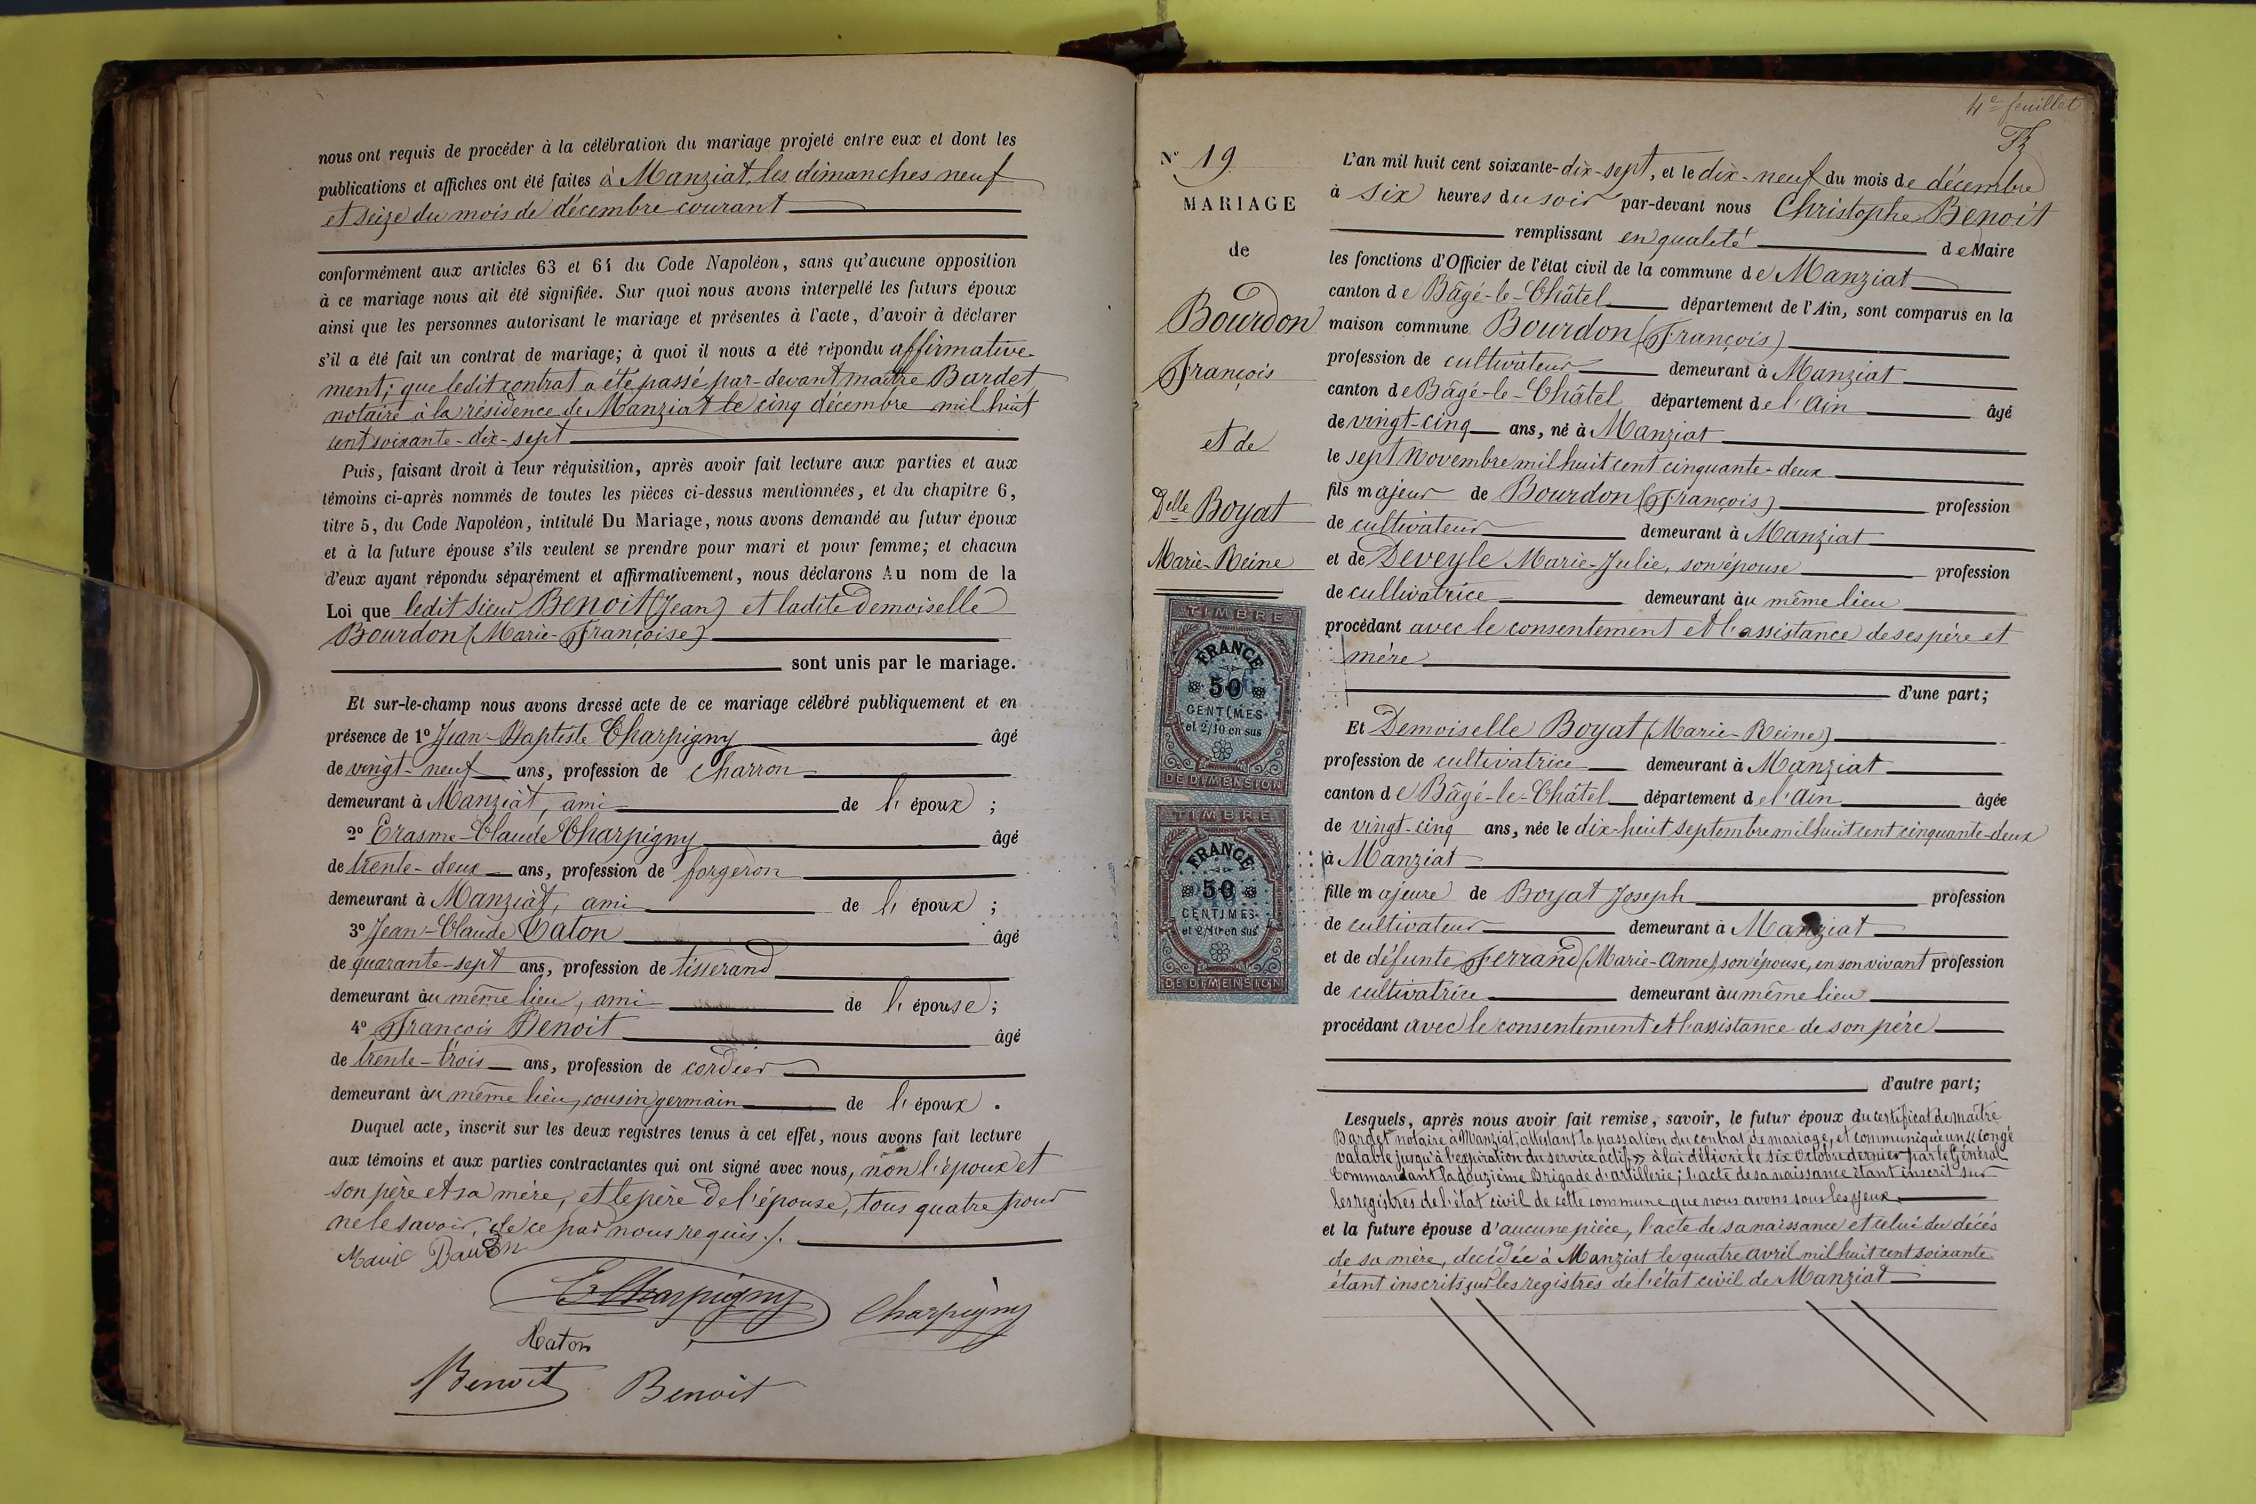 nous ont requis de procéder à la célébration du mariage projeté entre eux et dont les
publications et affiches ont été faites à Manziat, les dimanches neuf
et seize du mois de décembre courant
conformément aux articles 63 et 64 du Code Napoléon, sans qu'aucune opposition
à ce mariage nous ait été signifiée. Sur quoi nous avons interpellé les futurs époux
ainsi que les personnes autorisant le mariage et présentes à l'acte, d'avoir à déclarer
s'il a été fait un contrat de mariage; à quoi il nous a été répondu affirmative-
ment; que ledit contrat a été passé par-devant maître Bardet
notaire à la résidence de Manziat le cinq décembre mil huit
cent soixante-dix-sept
Puis, faisant droit à leur réquisition, après avoir fait lecture aux parties et aux
témoins ci-après nommés de toutes les pièces ci-dessus mentionnées, et du chapitre 6,
titre 5, du Code Napoléon, intitulé Du Mariage, nous avons demandé au futur époux
et à la future épouse s'ils veulent se prendre pour mari et pour femme; et chacun
d'eux ayant répondu séparément et affirmativement, nous déclarons Au nom de la
Loi que ledit sieur Benoit (Jean) et ladite Demoiselle
Bourdon (Marie-Françoise)
sont unis par le mariage.
Et sur-le-champ nous avons dressé acte de ce mariage célébré publiquement et en
présence de 1º Jean-Baptiste Charpigny âgé
de vingt-neuf ans, profession de charron
demeurant à Manziat, ami de l'époux ;
2º Erasme-Claude Charpigny âgé
de trente-deux ans, profession de forgeron
demeurant à Manziat, ami de l'époux ;
3º Jean-Claude Caton âgé
de quarante-sept ans, profession de tisserand
demeurant au même lieu, ami de l'épouse ;
4º François Benoit âgé
de trente-trois ans, profession de cordier
demeurant au même lieu, cousin germain de l'époux .
Duquel acte, inscrit sur les deux registres tenus à cet effet, nous avons fait lecture
aux témoins et aux parties contractantes qui ont signé avec nous, non l'époux et
son père et sa mère, et le père de l'épouse, tous quatre pour
ne le savoir, de ce par nous requis ./.
E Charpigny
Charpigny
Caton
Benoit
Benoit
4e feuillet
Nº 19.
MARIAGE
de
Bourdon
François
et de
Delle Boyat
Marie-Reine
TIMBRE
FRANCE
50
CENTIMES
et 2/10 en sus
DE DIMENSION
TIMBRE
FRANCE
50
CENTIMES
et 2/10 en sus
DE DIMENSION
L'an mil huit cent soixante-dix-sept, et le dix-neuf du mois de décembre
à six heures du soir par-devant nous Christophe Benoit
remplissant en qualité de Maire
les fonctions d'Officier de l'état civil de la commune de Manziat
canton de Bâgé-le-Châtel département de l'Ain, sont comparus en la
maison commune Bourdon (François)
profession de cultivateur demeurant à Manziat
canton de Bâgé-le-Châtel département de l'Ain âgé
de vingt-cinq ans, né à Manziat
le sept Novembre mil huit cent cinquante-deux
fils majeur de Bourdon (François) profession
de cultivateur demeurant à Manziat
et de Deveyle Marie-Julie, son épouse profession
de cultivatrice demeurant au même lieu
procédant avec le consentement et l'assistance de ses père et
mère
d'une part;
Et Demoiselle Boyat (Marie-Reine)
profession de cultivatrice demeurant à Manziat
canton de Bâgé-le-Châtel département de l'Ain âgée
de vingt-cinq ans, née le dix-huit septembre mil huit cent cinquante-deux
à Manziat
fille majeure de Boyat Joseph profession
de cultivateur demeurant à Manziat
et de défunte Ferrand (Marie-Anne) son épouse, en son vivant profession
de cultivatrice demeurant au même lieu
procédant avec le consentement et l'assistance de son père
d'autre part;
Lesquels, après nous avoir fait remise, savoir, le futur époux du certificat de maître
Bardet notaire à Manziat, attestant la passation du contrat de mariage, et communiqué un « congé
valable jusqu'à l'expiration du service actif » à lui délivré le six Octobre dernier par le Général
Commandant la douzième Brigade d'artillerie; l'acte de sa naissance étant inscrit sur
les registres de l'état civil de cette commune que nous avons sous les yeux
et la future épouse d'aucune pièce, l'acte de sa naissance et celui du décès
de sa mère, décédée à Manziat le quatre avril mil huit cent soixante
étant inscrits sur les registres de l'état civil de Manziat